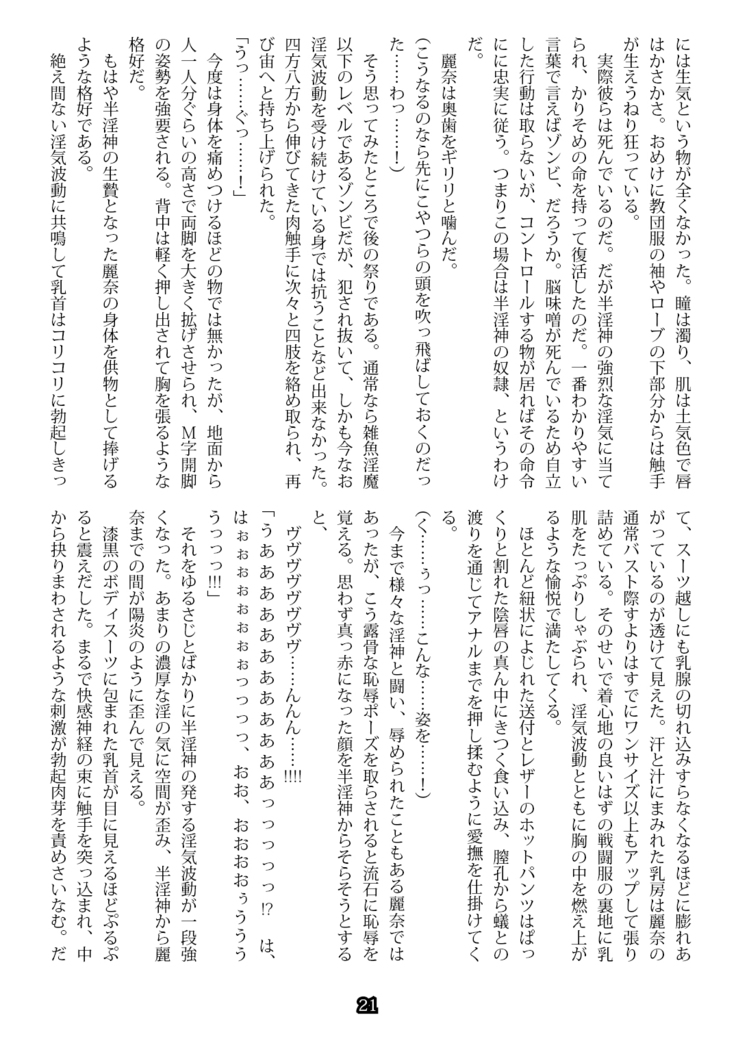 には生気という物が全くなかった。瞳は濁り、肌は土気色で唇
はかさかさ。おめけに教団服の袖やローブの下部分からは触手
が生えうねり狂っている。
　実際彼らは死んでいるのだ。だが半淫神の強烈な淫気に当て
られ、かりそめの命を持って復活したのだ。一番わかりやすい
言葉で言えばゾンビ、だろうか。脳味噌が死んでいるため自立
した行動は取らないが、コントロールする物が居ればその命令
にに忠実に従う。つまりこの場合は半淫神の奴隷、というわけ
だ。
　麗奈は奥歯をギリリと噛んだ。
（こうなるのなら先にこやつらの頭を吹っ飛ばしておくのだっ
た……わっ……！）
　そう思ってみたところで後の祭りである。通常なら雑魚淫魔
以下のレベルであるゾンビだが、犯され抜いて、しかも今なお
淫気波動を受け続けている身では抗うことなど出来なかった。
四方八方から伸びてきた肉触手に次々と四肢を絡め取られ、再
び宙へと持ち上げられた。
「うっ……ぐっ……！」
　今度は身体を痛めつけるほどの物では無かったが、地面から
人一人分ぐらいの高さで両脚を大きく拡げさせられ、Ｍ字開脚
の姿勢を強要される。背中は軽く押し出されて胸を張るような
格好だ。
　もはや半淫神の生贄となった麗奈の身体を供物として捧げる
ような格好である。
　絶え間ない淫気波動に共鳴して乳首はコリコリに勃起しきっ
て、スーツ越しにも乳腺の切れ込みすらなくなるほどに膨れあ
がっているのが透けて見えた。汗と汁にまみれた乳房は麗奈の
通常バスト際すよりはすでにワンサイズ以上もアップして張り
詰めている。そのせいで着心地の良いはずの戦闘服の裏地に乳
肌をたっぷりしゃぶられ、淫気波動とともに胸の中を燃え上が
るような愉悦で満たしてくる。
　ほとんど紐状によじれた送付とレザーのホットパンツはぱっ
くりと割れた陰唇の真ん中にきつく食い込み、膣孔から蟻との
渡りを通じてアナルまでを押し揉むように愛撫を仕掛けてく
る。
（く……ぅっ……こんな……姿を……！）
　今まで様々な淫神と闘い、辱められたこともある麗奈では
あったが、こう露骨な恥辱ポーズを取らされると流石に恥辱を
覚える。思わず真っ赤になった顔を半淫神からそらそうとする
と、
　ヴヴヴヴヴヴヴ……んんん……!!!!
「うああああああああああああっっっっっ!?　は、
はぉぉぉぉぉぉぉぉっっっっ、おお、おおおおぅうううう
うっっっ!!!」
　それをゆるさじとばかりに半淫神の発する淫気波動が一段強
くなった。あまりの濃厚な淫の気に空間が歪み、半淫神から麗
奈までの間が陽炎のように歪んで見える。
　漆黒のボディスーツに包まれた乳首が目に見えるほどぷるぷ
ると震えだした。まるで快感神経の束に触手を突っ込まれ、中
から抉りまわされるような刺激が勃起肉芽を責めさいなむ。だ
21